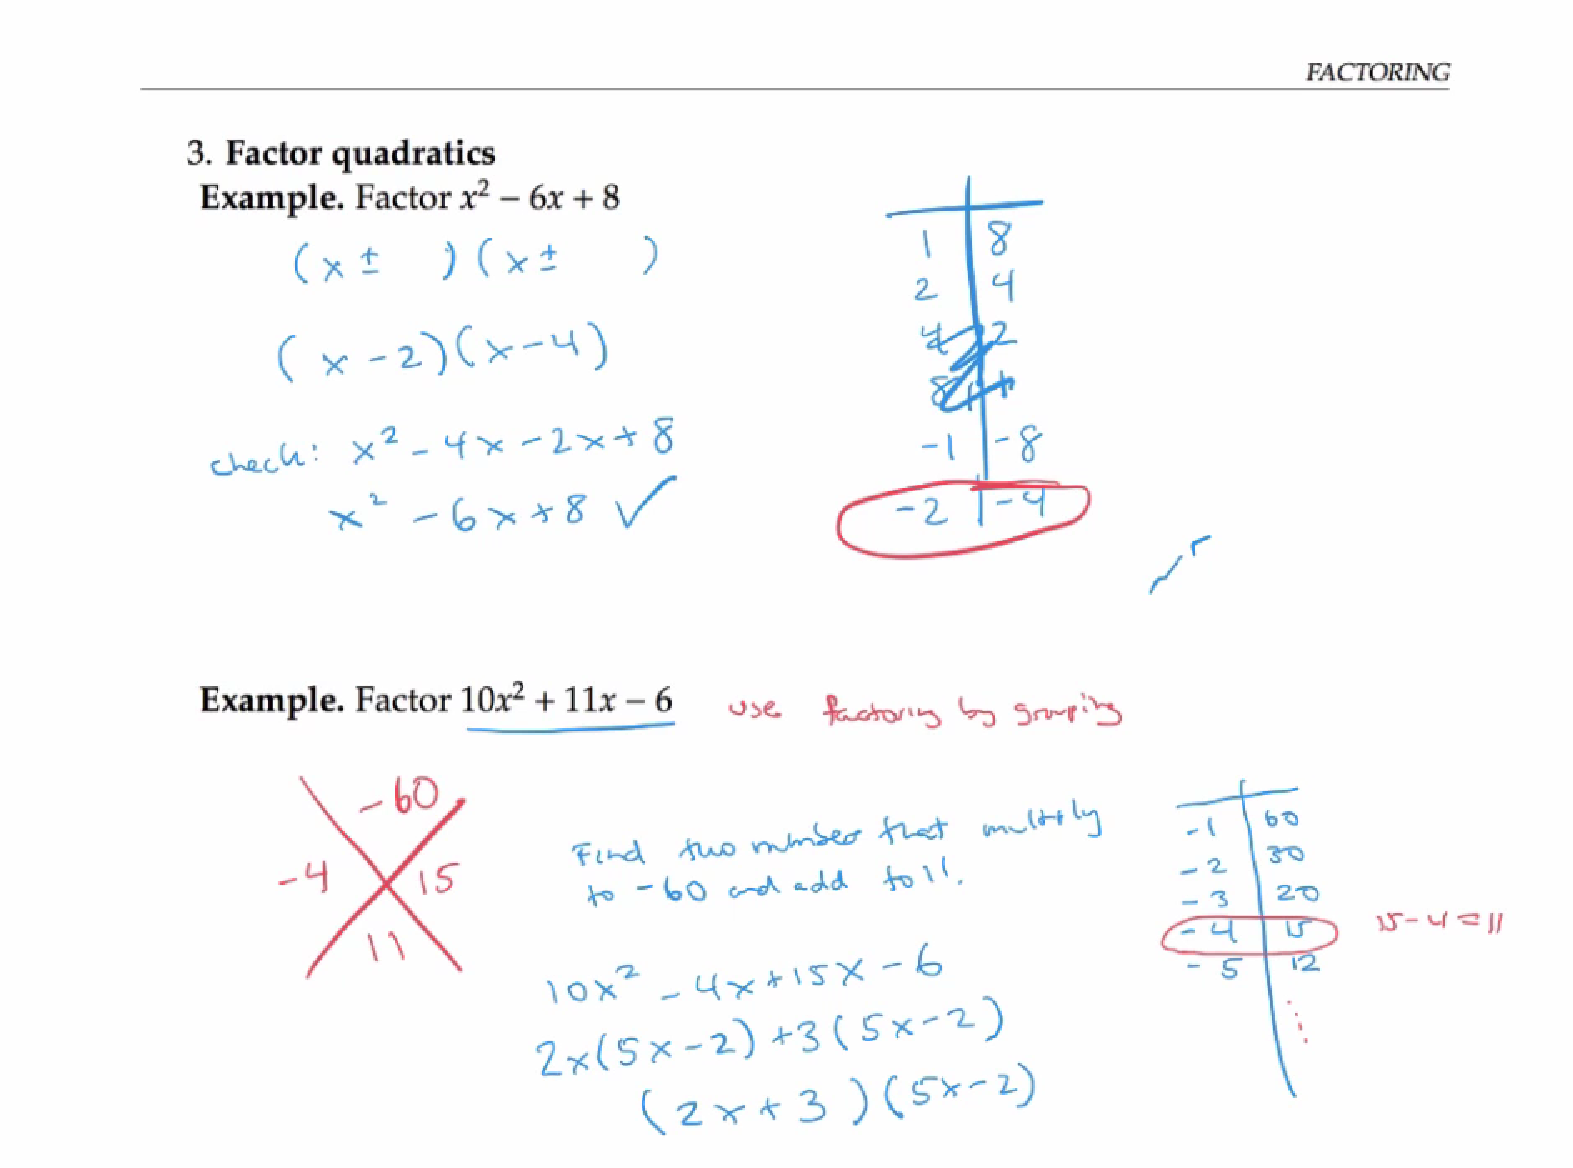 FACTORING
3. Factor quadratics
Example. Factor x² − 6x + 8
(x ± )(x ± )
(x − 2)(x − 4)
check: x² − 4x − 2x + 8
x² − 6x + 8 ✓
1 | 8
2 | 4
4 | 2
8 | 1
-1 | -8
-2 | -4
Example. Factor 10x² + 11x − 6 use factoring by grouping
-60
-4 15
11
Find two number that multiply
to -60 and add to 11.
10x² − 4x + 15x − 6
2x(5x − 2) + 3(5x − 2)
(2x + 3)(5x − 2)
-1 | 60
-2 | 30
-3 | 20
-4 | 15 15 - 4 = 11
-5 | 12